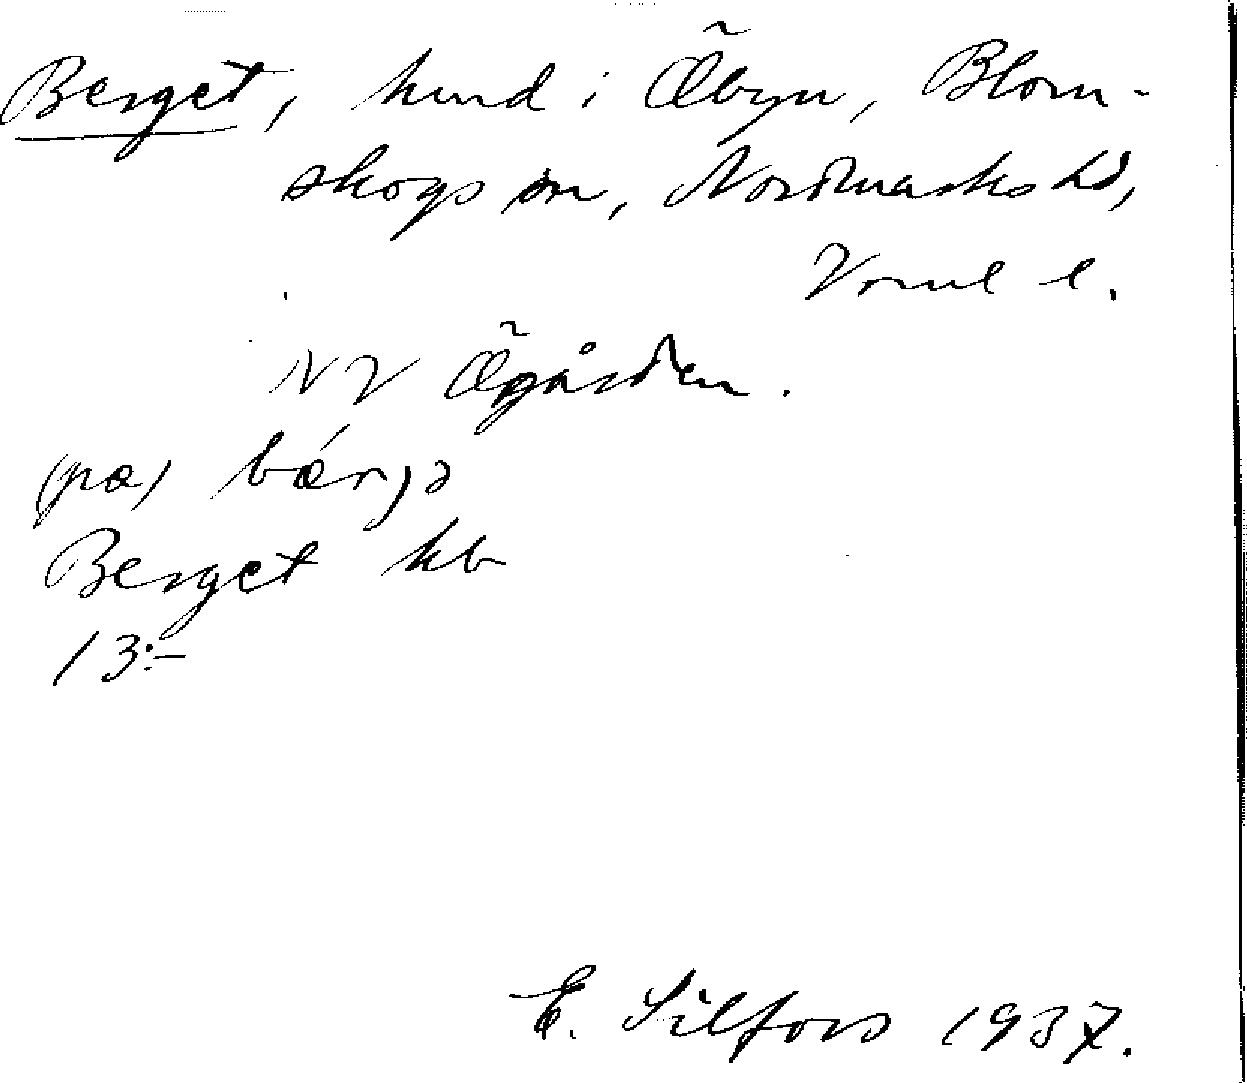 Berget, hmd i Õbyn, Blom-
skogs sn, Nordmarks hd,
Vrml l.
NV Õgården.
(pæ) bǽrjə
Berget kb
13:-
E. Silfors 1937.